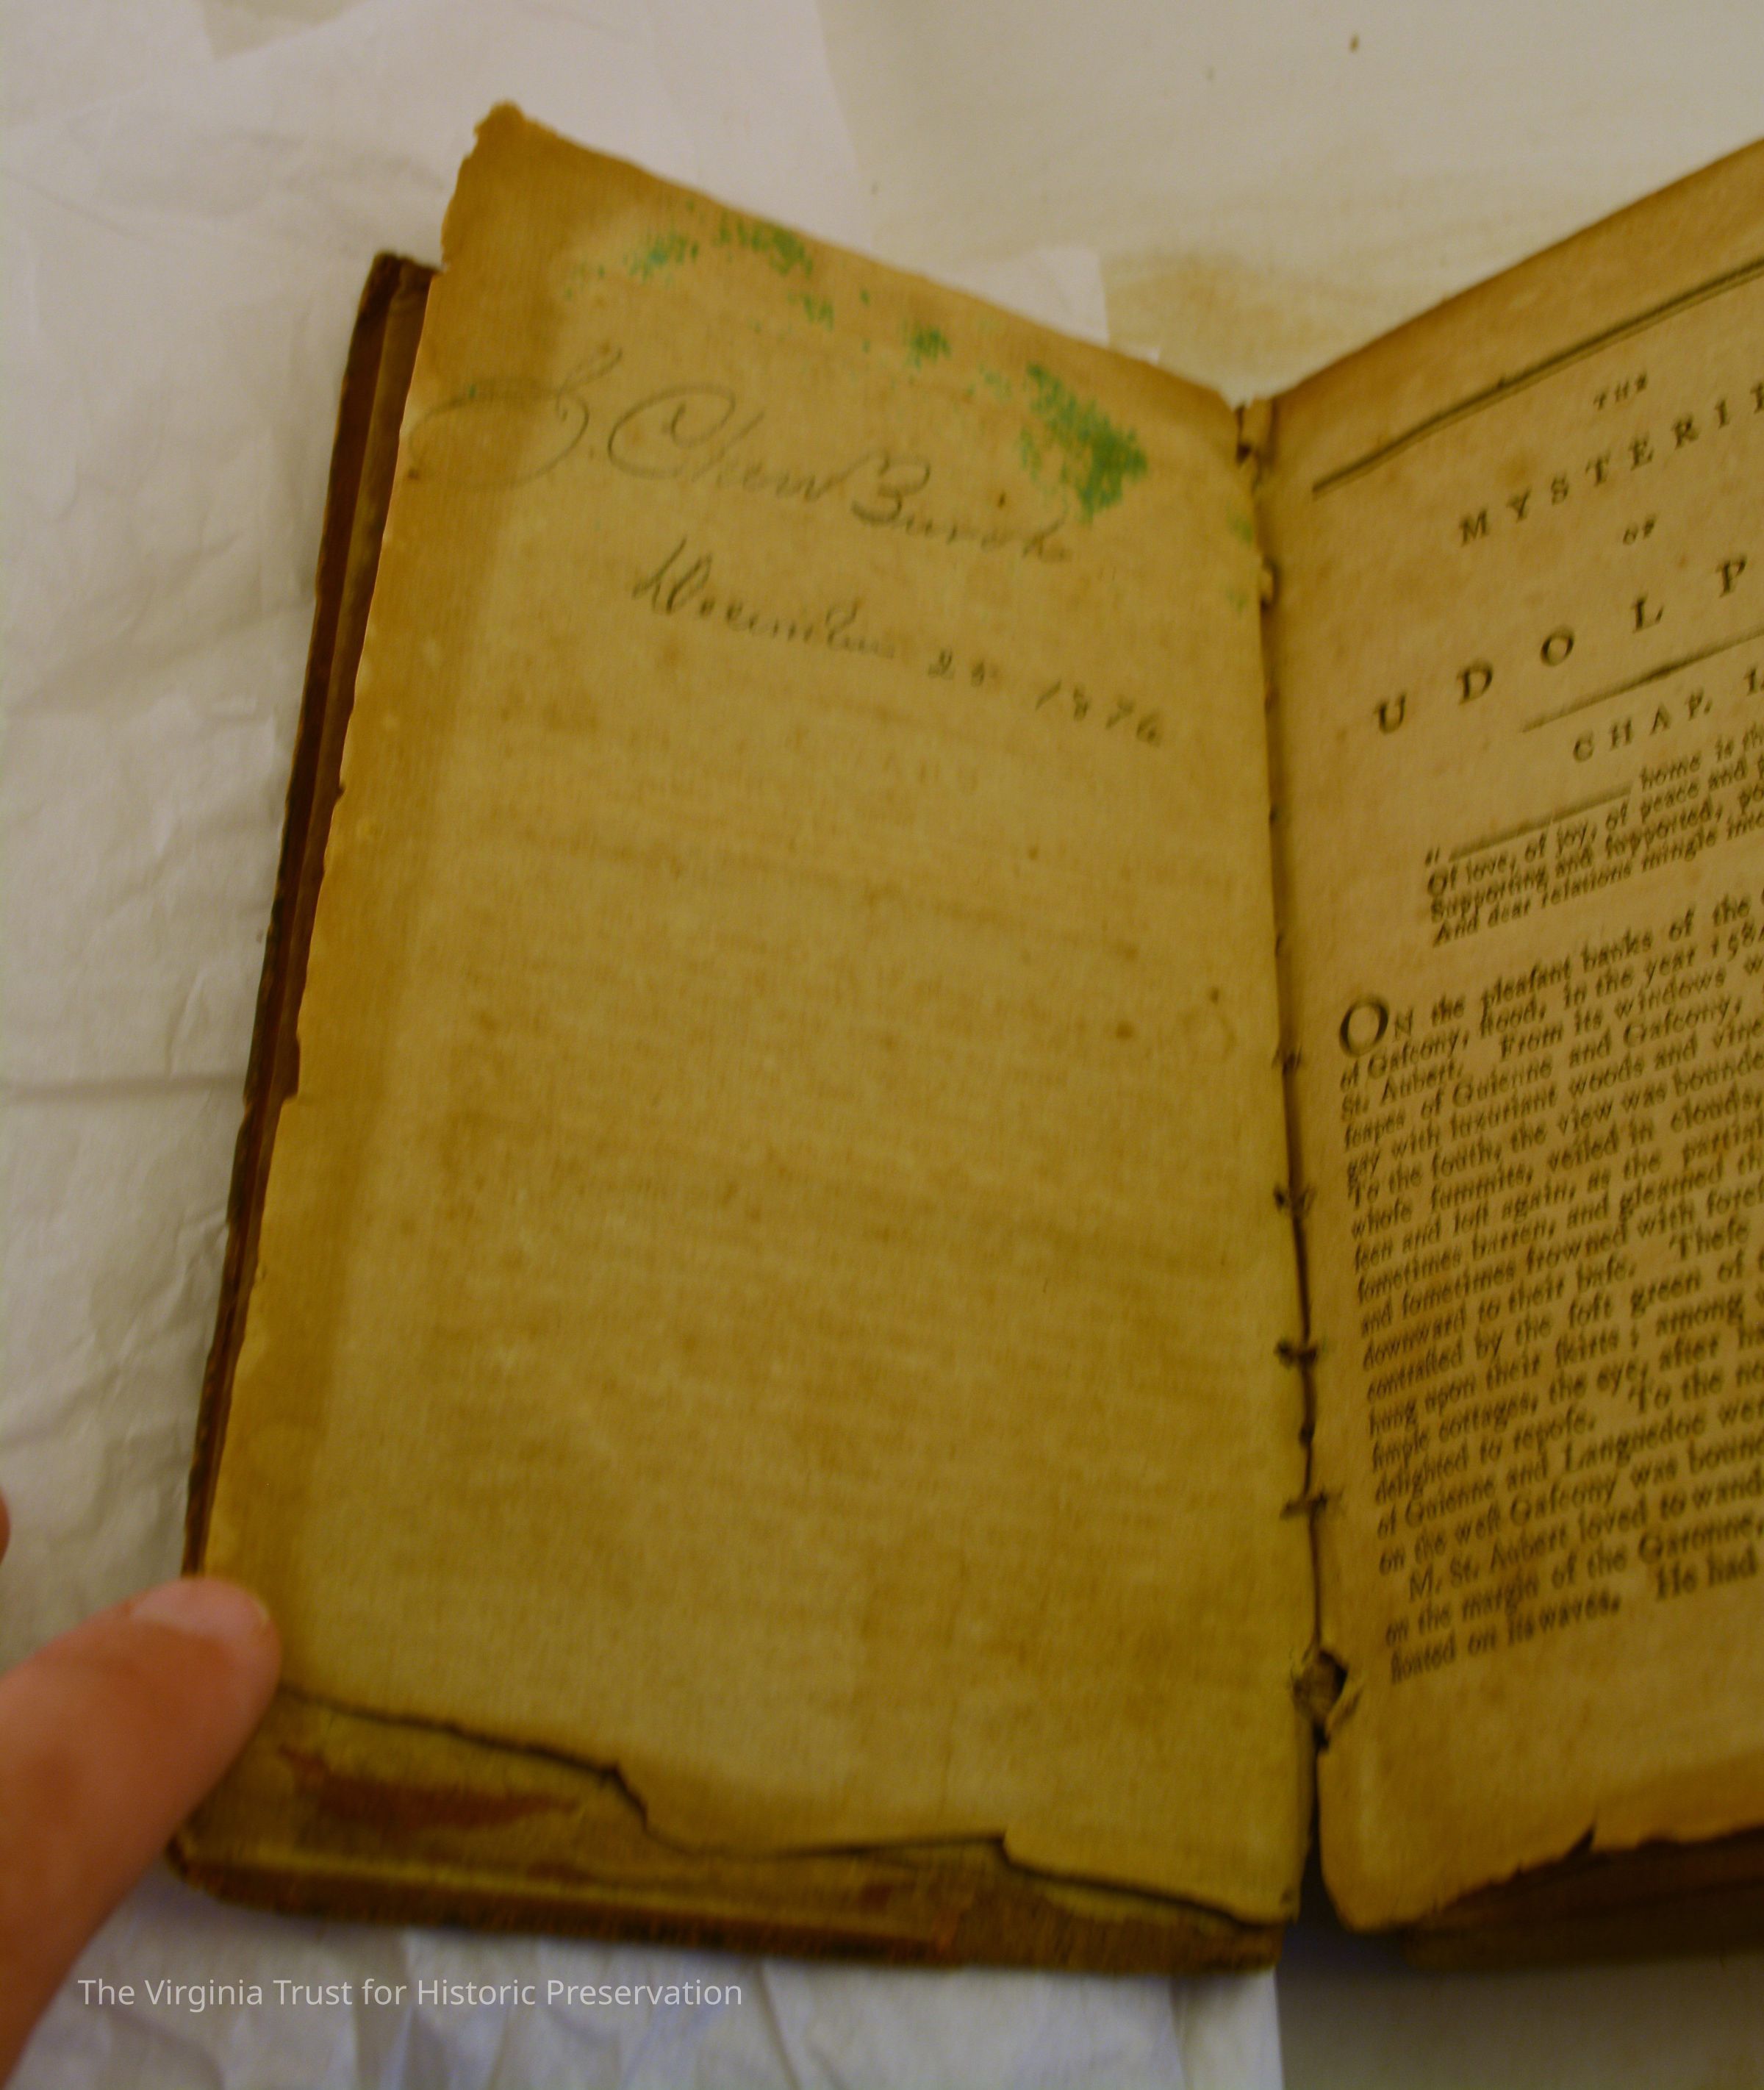 S. Chew Burch
December 25 1876
THE
MYSTERIE
OF
UDOLP
CHAP. I.
" ——— home is the
Of love, of joy, of peace and
Supporting and supported, po
And dear relations mingle into
ON the pleaſant banks of the
of Gaſcony, ſtood, in the year 1584
St. Aubert. From its windows w
ſcapes of Guienne and Gaſcony,
gay with luxuriant woods and vine
To the ſouth, the view was bounde
whoſe ſummits, veiled in clouds,
ſeen and loſt again, as the partial
ſometimes barren, and gleamed th
and ſometimes frowned with foreſ
downward to their baſe. Theſe
contraſted by the ſoft green of t
hung upon their ſkirts ; among w
ſimple cottages, the eye, after ha
delighted to repoſe. To the no
of Guienne and Languedoc wer
on the weſt Gaſcony was boun
M. St. Aubert loved to wand
on the margin of the Garonne,
floated on its waves. He had
The Virginia Trust for Historic Preservation